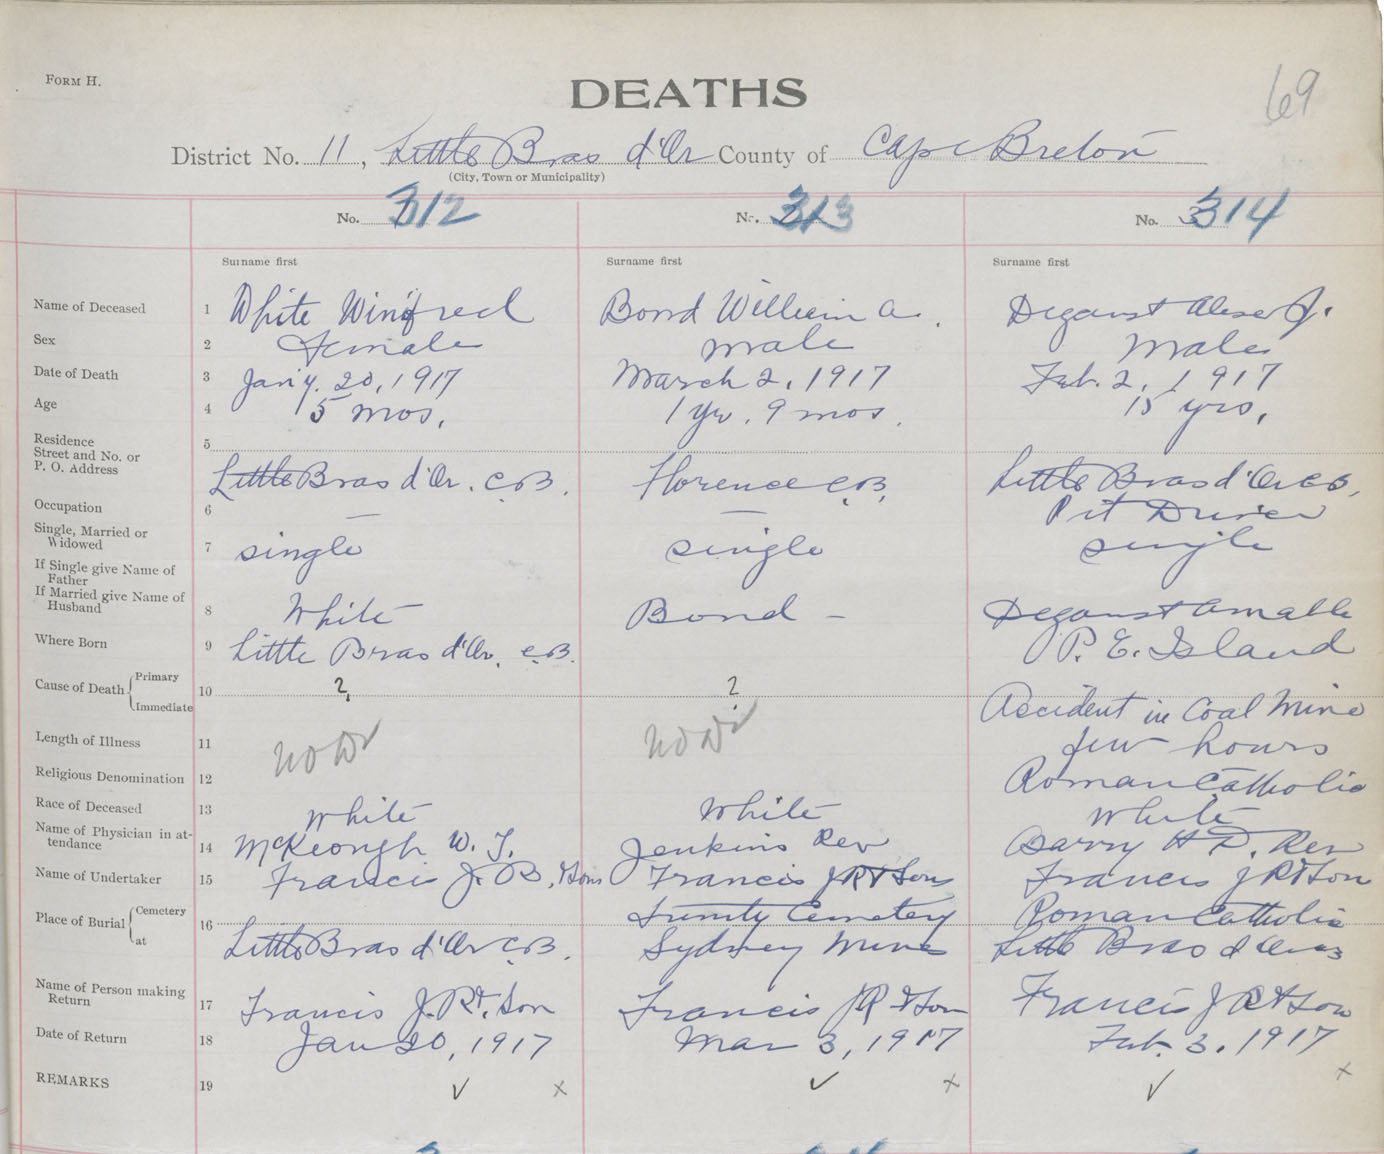 FORM H.
69
DEATHS
District No. 11, Little Bras d'Or County of Cape Breton
(City, Town or Municipality)
No. 312 No. 313 No. 314
Surname first Surname first Surname first
Name of Deceased 1 White Winifred Bond William A. J.
Sex 2 Female male Male
Date of Death 3 Jan'y. 20, 1917 March 2, 1917 Feb. 2, 1917
Age 4 5 mos. 1 yr. 9 mos. 15 yrs.
Residence
Street and No. or 5
P. O. Address Little Bras d'Or. C.B. Florence C.B. Little Bras d'Or C.B.
Occupation 6 — — Pit Driver
Single, Married or
Widowed 7 single single single
If Single give Name of
Father
If Married give Name of
Husband 8 White Bond –
Where Born 9 Little Bras d'Or. C.B. P. E. Island
Cause of Death Primary 10 ? ?
Immediate Accident in Coal Mine
Length of Illness 11 no Dr no Dr few hours
Religious Denomination 12 Roman Catholic
Race of Deceased 13 White White White
Name of Physician in at-
tendance 14 McKeough W. J. Jenkins Rev Barry H D. Rev
Name of Undertaker 15 Francis J. R. & Sons Francis J R & Sons Francis J R & Son
Place of Burial Cemetery 16 Trinity Cemetery Roman Catholic
at Little Bras d'Or C.B. Sydney Mines Little Bras d'Or CB
Name of Person making
Return 17 Francis J. R. & Son Francis J R & Son Francis J R & Son
Date of Return 18 Jan 20, 1917 Mar 3, 1917 Feb. 3, 1917
REMARKS 19 ✓ x ✓ x ✓ x